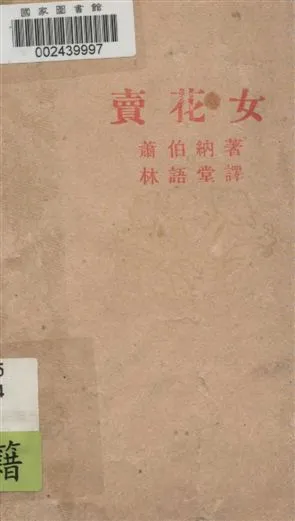 國家圖書館
002439997
賣花女
蕭伯納著
林語堂譯
5
4
籍